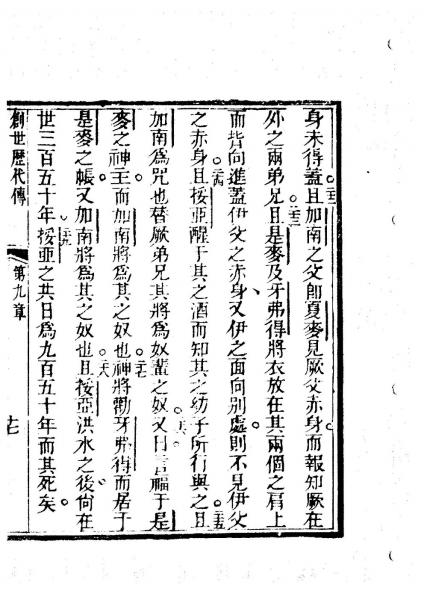 身未得蓋。且加南之父卽夏麥見厥父赤身而報知厥在
外之兩弟兄。且是麥及牙弗得將衣放在其兩個之肩上
而皆向進蓋伊父之赤身又伊之面向別處則不見伊父
之赤身。且挼亞醒于其之酒而知其之幼子所行與之。且
加南爲咒也替厥弟兄其將爲奴輩之奴。又曰言福于是
麥之神主而加南將爲其之奴也。神將勸牙弗得而居于
是麥之帳又加南將爲其之奴也。且挼亞洪水之後尙在
世三百五十年。挼亞之共日爲九百五十年而其死矣。
創世歷代傳
第九章